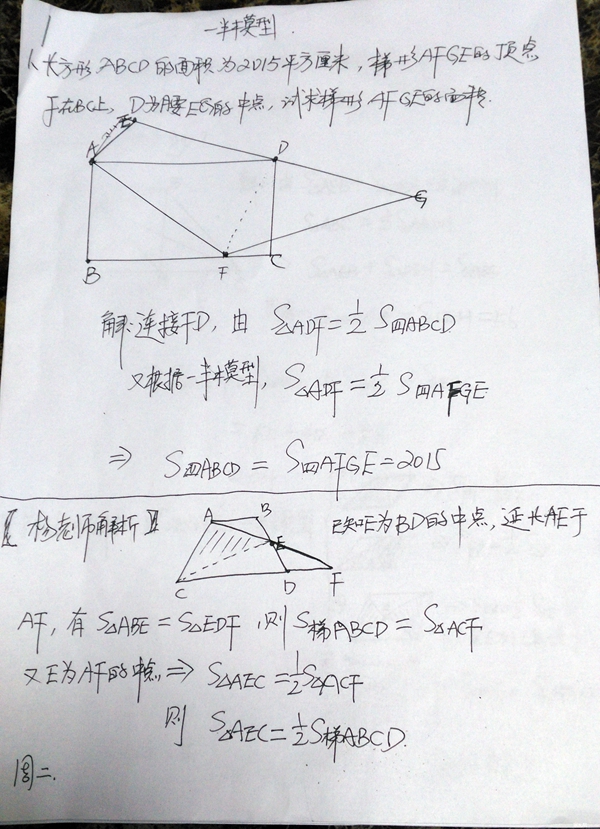 1
一半模型.
1、长方形ABCD的面积为2015平方厘米，梯形AFGE的顶点
F在BC上，D为腰EG的中点，试求梯形AFGE的面积.
E
A
D
G
B
F
C
解：连接FD，由 S△ADF=1/2 S四ABCD
又根据一半模型，S△ADF=1/2 S四AFGE
⇒ S四ABCD = S四AFGE=2015
【杨老师解析】
A
B
E
C
D
F
已知E为BD的中点，延长AE于
AF，有 S△ABE = S△EDF，则S梯ABCD = S△ACF
又E为AF的中点 ⇒ S△AEC=1/2S△ACF
则 S△AEC=1/2S梯ABCD.
周二.